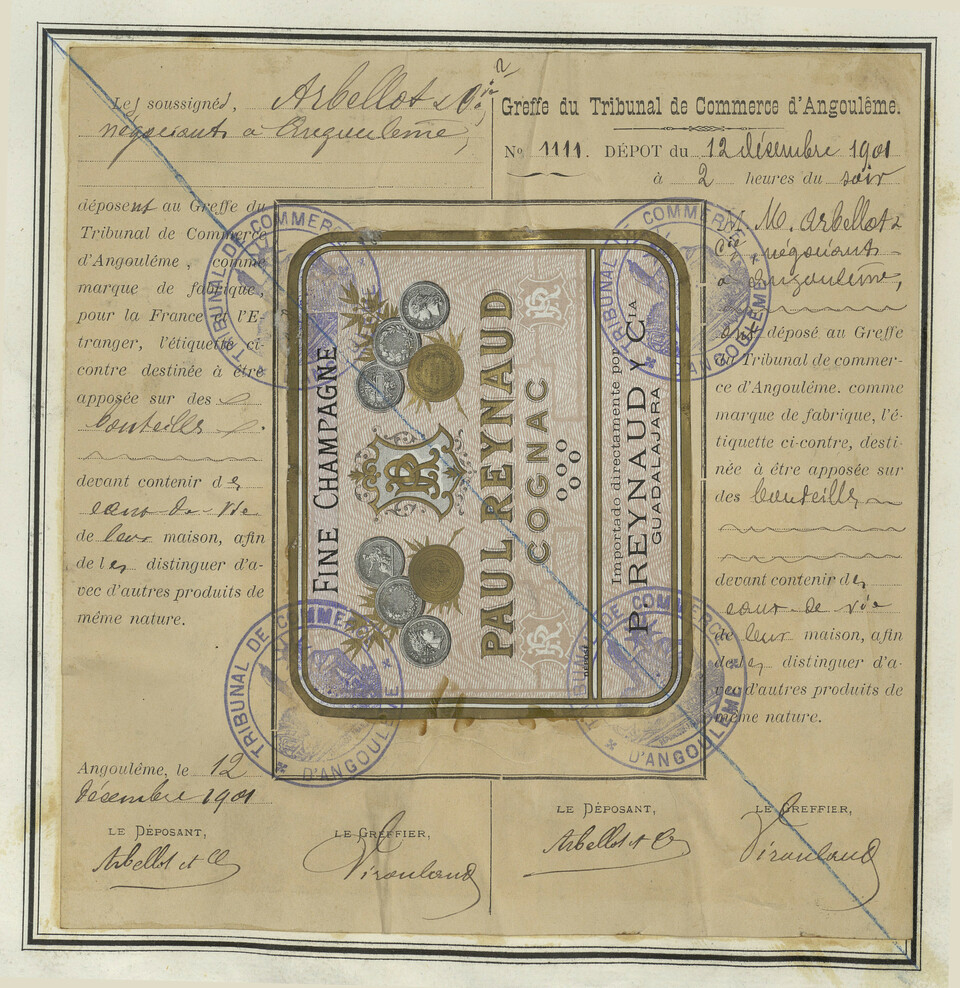 Les soussignés, Arbellot & Cie
négociants à Angoulême,
déposent au Greffe du
Tribunal de Commerce
d'Angoulême, comme
marque de fabrique,
pour la France et l'E-
tranger, l'étiquette ci-
contre destinée à être
apposée sur des
bouteilles
devant contenir des
eaux-de-vie
de leur maison, afin
de les distinguer d'a-
vec d'autres produits de
même nature.
Angoulême, le 12
décembre 1901
LE DÉPOSANT,
Arbellot et Cie
LE GREFFIER,
Greffe du Tribunal de Commerce d'Angoulême.
No 1111. DÉPOT du 12 décembre 1901
à 2 heures du soir
M. Arbellot &
Cie négociants
à Angoulême,
déposé au Greffe
Tribunal de commer-
ce d'Angoulême. comme
marque de fabrique, l'é-
tiquette ci-contre, desti-
née à être apposée sur
des bouteilles
devant contenir des
eaux-de-vie
de leur maison, afin
de les distinguer d'a-
vec d'autres produits de
même nature.
LE DÉPOSANT,
Arbellot et Cie
LE GREFFIER,
FINE CHAMPAGNE
PR
PAUL REYNAUD
COGNAC
Importado directamente por
P. REYNAUD Y CIA
GUADALAJARA
TRIBUNAL DE COMMERCE D'ANGOULÊME
TRIBUNAL DE COMMERCE D'ANGOULÊME
TRIBUNAL DE COMMERCE D'ANGOULÊME
TRIBUNAL DE COMMERCE D'ANGOULÊME